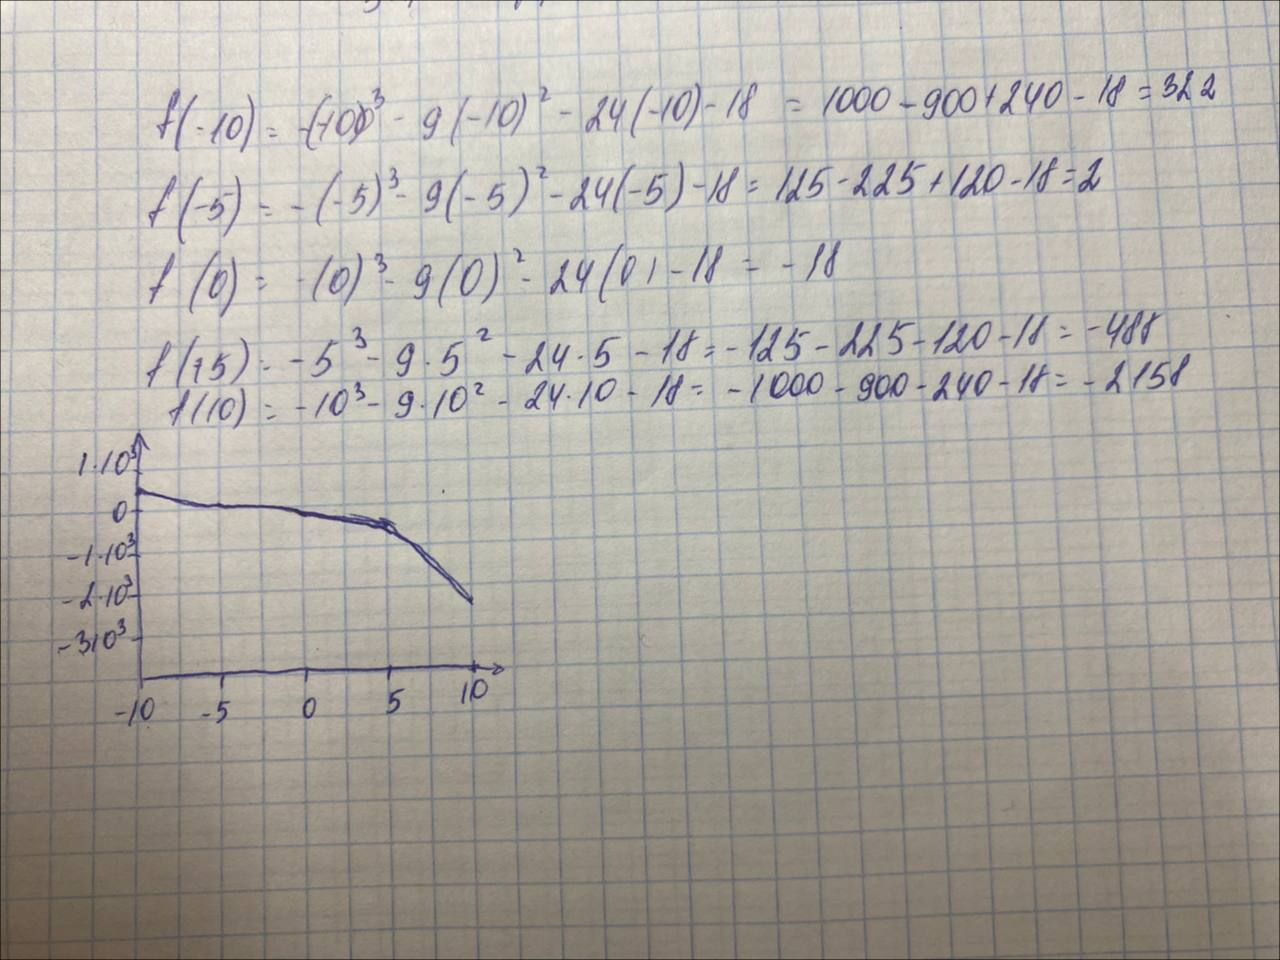 f(-10) = -(-10)³ - 9(-10)² - 24(-10) - 18 = 1000 - 900 + 240 - 18 = 322
f(-5) = -(-5)³ - 9(-5)² - 24(-5) - 18 = 125 - 225 + 120 - 18 = 2
f(0) = -(0)³ - 9(0)² - 24(0) - 18 = -18
f(+5) = -5³ - 9·5² - 24·5 - 18 = -125 - 225 - 120 - 18 = -488
f(10) = -10³ - 9·10² - 24·10 - 18 = -1000 - 900 - 240 - 18 = -2158
1·10³
0
-1·10³
-2·10³
-3·10³
-10 -5 0 5 10